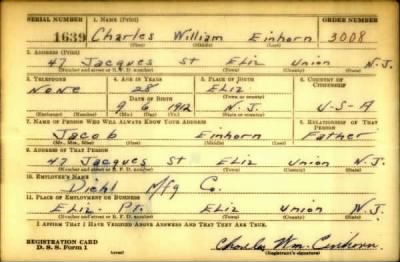 SERIAL NUMBER 1. NAME (Print) ORDER NUMBER
1639 Charles William Einhorn 3008
(First) (Middle) (Last)
2. ADDRESS (Print)
47 Jacques St Eliz Union N.J.
(Number and street or R. F. D. number) (Town) (County) (State)
3. TELEPHONE 4. AGE IN YEARS 5. PLACE OF BIRTH 6. COUNTRY OF CITIZENSHIP
None 28 Eliz
DATE OF BIRTH (Town or county)
9 6 1912 N.J. U-S-A
(Mo.) (Day) (Yr.) (State or country)
7. NAME OF PERSON WHO WILL ALWAYS KNOW YOUR ADDRESS 8. RELATIONSHIP OF THAT PERSON
Jacob Einhorn Father
(Mr., Mrs., Miss) (First) (Middle) (Last)
9. ADDRESS OF THAT PERSON
47 Jacques St Eliz Union N.J.
(Number and street or R. F. D. number) (Town) (County) (State)
10. EMPLOYER'S NAME
Diehl Mfg Co.
11. PLACE OF EMPLOYMENT OR BUSINESS
Eliz. Pt. Eliz Union N.J.
(Number and street or R. F. D. number) (Town) (County) (State)
I AFFIRM THAT I HAVE VERIFIED ABOVE ANSWERS AND THAT THEY ARE TRUE.
REGISTRATION CARD
D. S. S. Form 1 (over) Charles Wm. Einhorn.
(Registrant's signature)